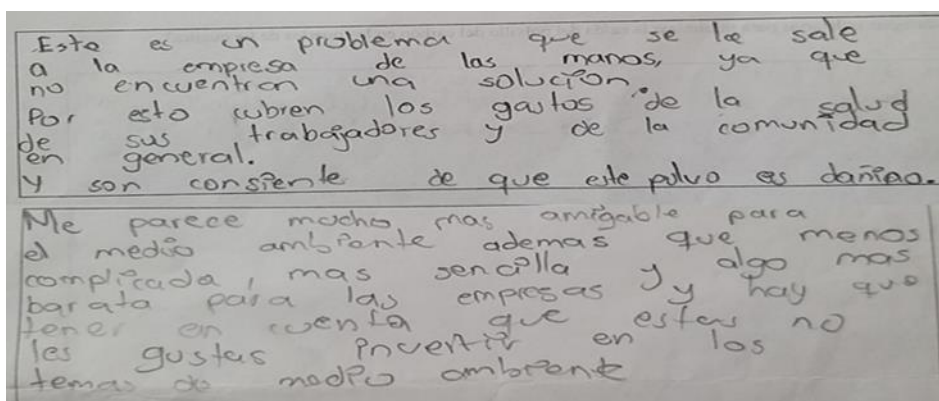 Este es un problema que se le sale
a la empresa de las manos, ya que
no encuentran una solución.
Por esto cubren los gastos de la salud
de sus trabajadores y de la comunidad
en general.
y son consiente de que este polvo es dañino.
Me parece mucho mas amigable para
el medio ambiente ademas que menos
complicada, mas sencilla y algo mas
barata para las empresas y hay que
tener en cuenta que estas no
les gustas invertir en los
temas de medio ambiente